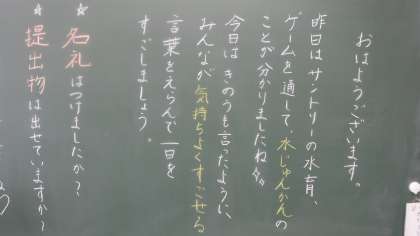 おはようございます。
昨日はサントリーの水育、
ゲームを通して、水じゅんかんの
ことが分かりましたね☆☆
今日は きのうも言ったように、
みんなが気持ちよくすごせる
言葉をえらんで一日を
すごしましょう。
★名札はつけましたか？
★提出物は出せていますか？